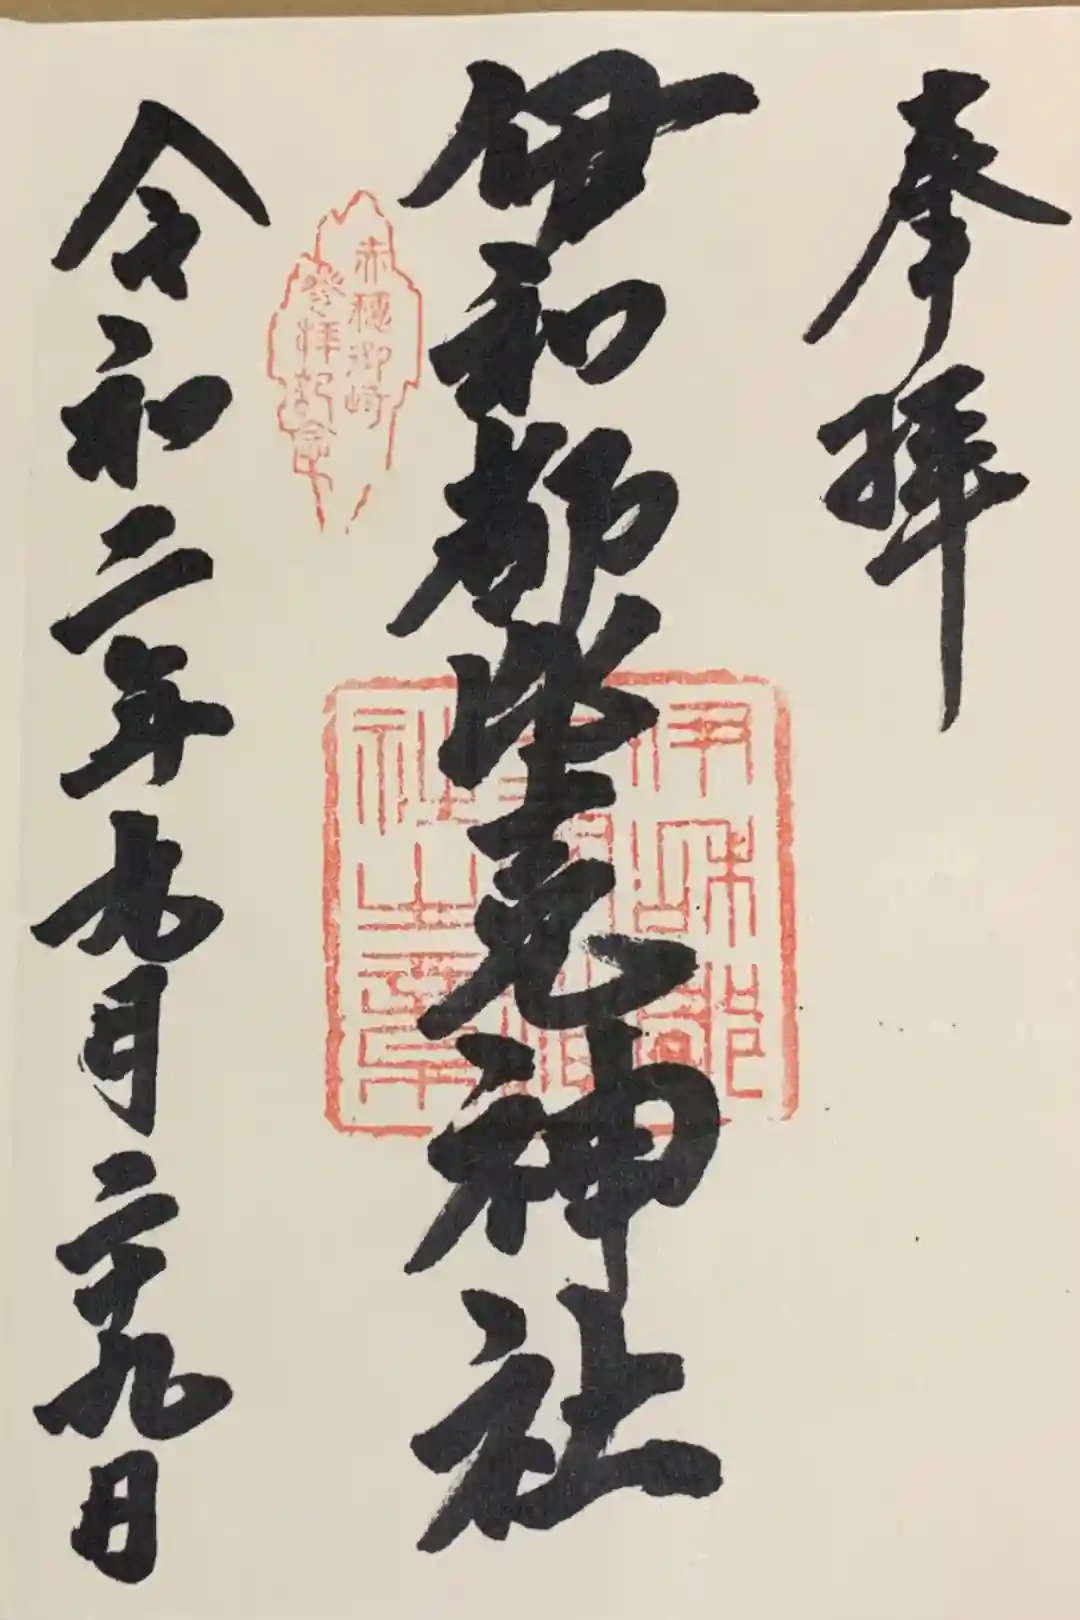 奉拝
伊和都比売神社
伊和都
比売神
社之章
赤穂御崎
参拝記念
令和二年九月二十九日